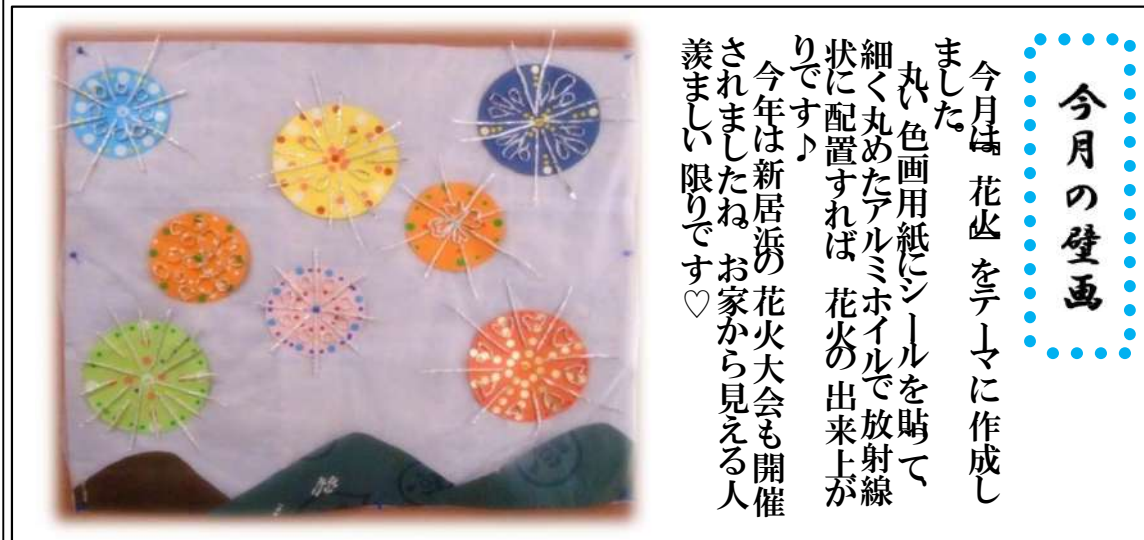 今月の壁画
今月は『花火』をテーマに作成し
ました。
丸い色画用紙にシールを貼って、
細く丸めたアルミホイルで放射線
状に配置すれば、花火の出来上が
りです♪
今年は新居浜の花火大会も開催
されましたね。お家から見える人
羨ましい限りです♡